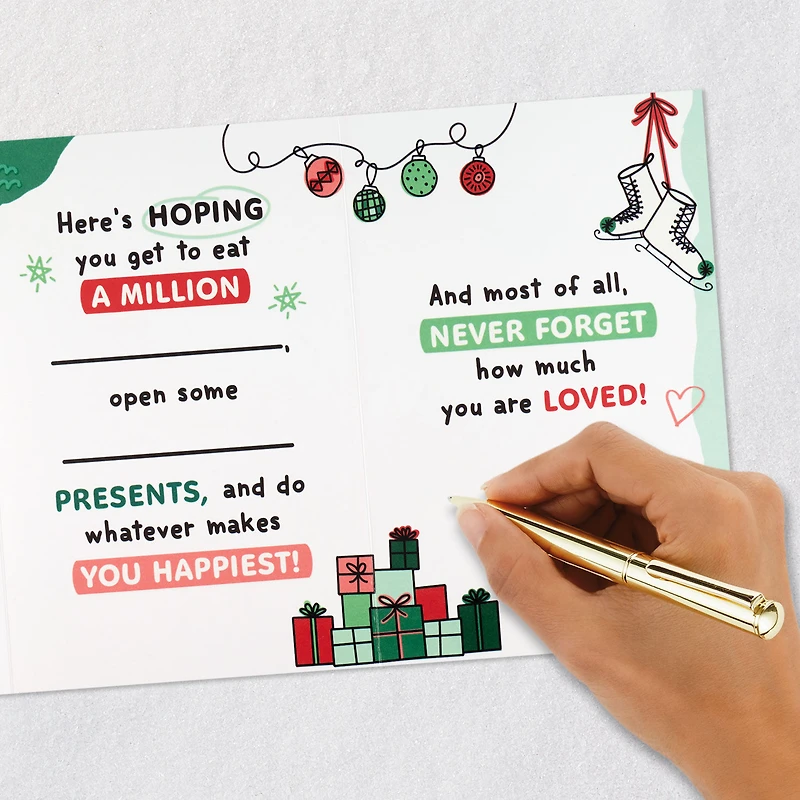 Here's HOPING
you get to eat
A MILLION
____________,
open some
____________
PRESENTS, and do
whatever makes
YOU HAPPIEST!
And most of all,
NEVER FORGET
how much
you are LOVED!